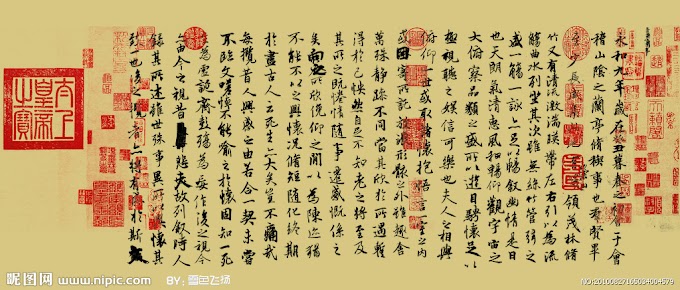 永和九年歲在癸丑暮春之初會于會
稽山陰之蘭亭脩稧事也羣賢畢
少長咸集 領茂林脩
竹又有清流激湍暎帶左右引以為流
觴曲水列坐其次雖無絲竹管弦之
盛一觴一詠亦足以暢敘幽情是日
也天朗氣清惠風和暢仰觀宇宙之
大俯察品類之盛所以遊目騁懷足以
極視聽之娛信可樂也夫人之相與
俯仰一世或取諸懷抱悟言一室之內
或因寄所託放浪形骸之外雖趣舍
萬殊靜躁不同當其欣於所遇暫
得於己怏然自足不知老之將至及
其所之既惓情隨事遷感慨係之
矣向之所欣俛仰之閒以為陳迹猶
不能不以之興懷況脩短隨化終期
於盡古人云死生亦大矣豈不痛哉
每攬昔人興感之由若合一契未嘗
不臨文嗟悼不能喻之於懷固知一死
生為虛誕齊彭殤為妄作後之視今
亦由今之視昔悲夫故列敘時人
錄其所述雖世殊事異所以興懷其
致一也後之覽者亦將有感於斯
太上皇帝之寶
昵图网 www.nipic.com
BY: 雪色飞扬
NO:20100827165004004579